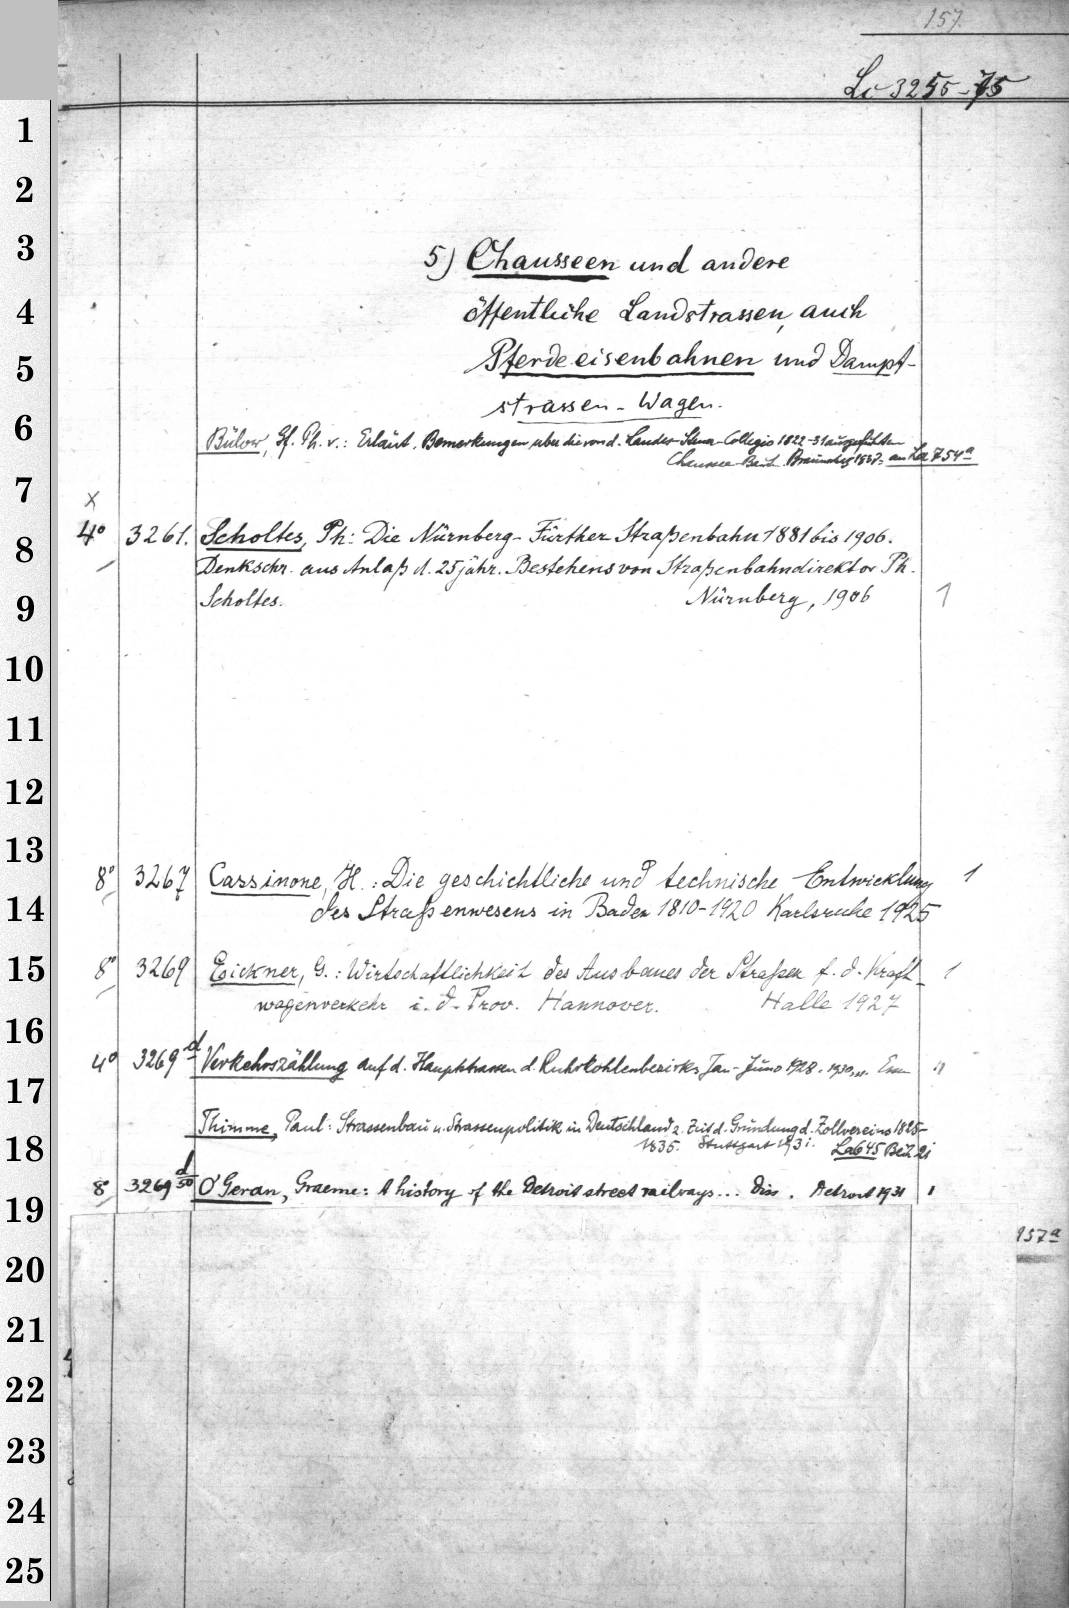 157.
Lc 3255-75
1
2
3
4
5
6
7
8
9
10
11
12
13
14
15
16
17
18
19
20
21
22
23
24
25
5) Chausseen und andere
öffentliche Landstrassen, auch
Pferdeeisenbahnen und Dampf-
strassen-Wagen.
Bülow, Gf. Ph. v.: Erläut. Bemerkungen über die von d. Landes-Steuer-Collegio 1822-31 ausgeführten
Chaussee-Baut. Braunschg 1837. an La 754a
x
4° 3261. Scholtes, Ph: Die Nürnberg-Fürther Straßenbahn 1881 bis 1906.
Denkschr. aus Anlaß d. 25jähr. Bestehens von Straßenbahndirektor Ph.
Scholtes. Nürnberg, 1906 1
8° 3267 Cassinone, H.: Die geschichtliche und technische Entwicklung 1
des Straßenwesens in Baden 1810-1920 Karlsruhe 1925
8° 3269 Eickner, G.: Wirtschaftlichkeit des Ausbaues der Straßen f. d. Kraft- 1
wagenverkehr i. d. Prov. Hannover. Halle 1927
4° 3269d Verkehrszählung auf d. Hauptstrassen d. Ruhrkohlenbezirks, Jan-Juno 1928. 1930,
Thimme, Paul: Strassenbau u. Strassenpolitik in Deutschland z. Zeit d. Gründung d. Zollvereins 1825-
1835. Stuttgart 1931. La 645 Bei 21
8° 3269 d/50 O'Geran, Graeme: A history of the Detroit street railways... Diss. Detroit 1931 1
157a